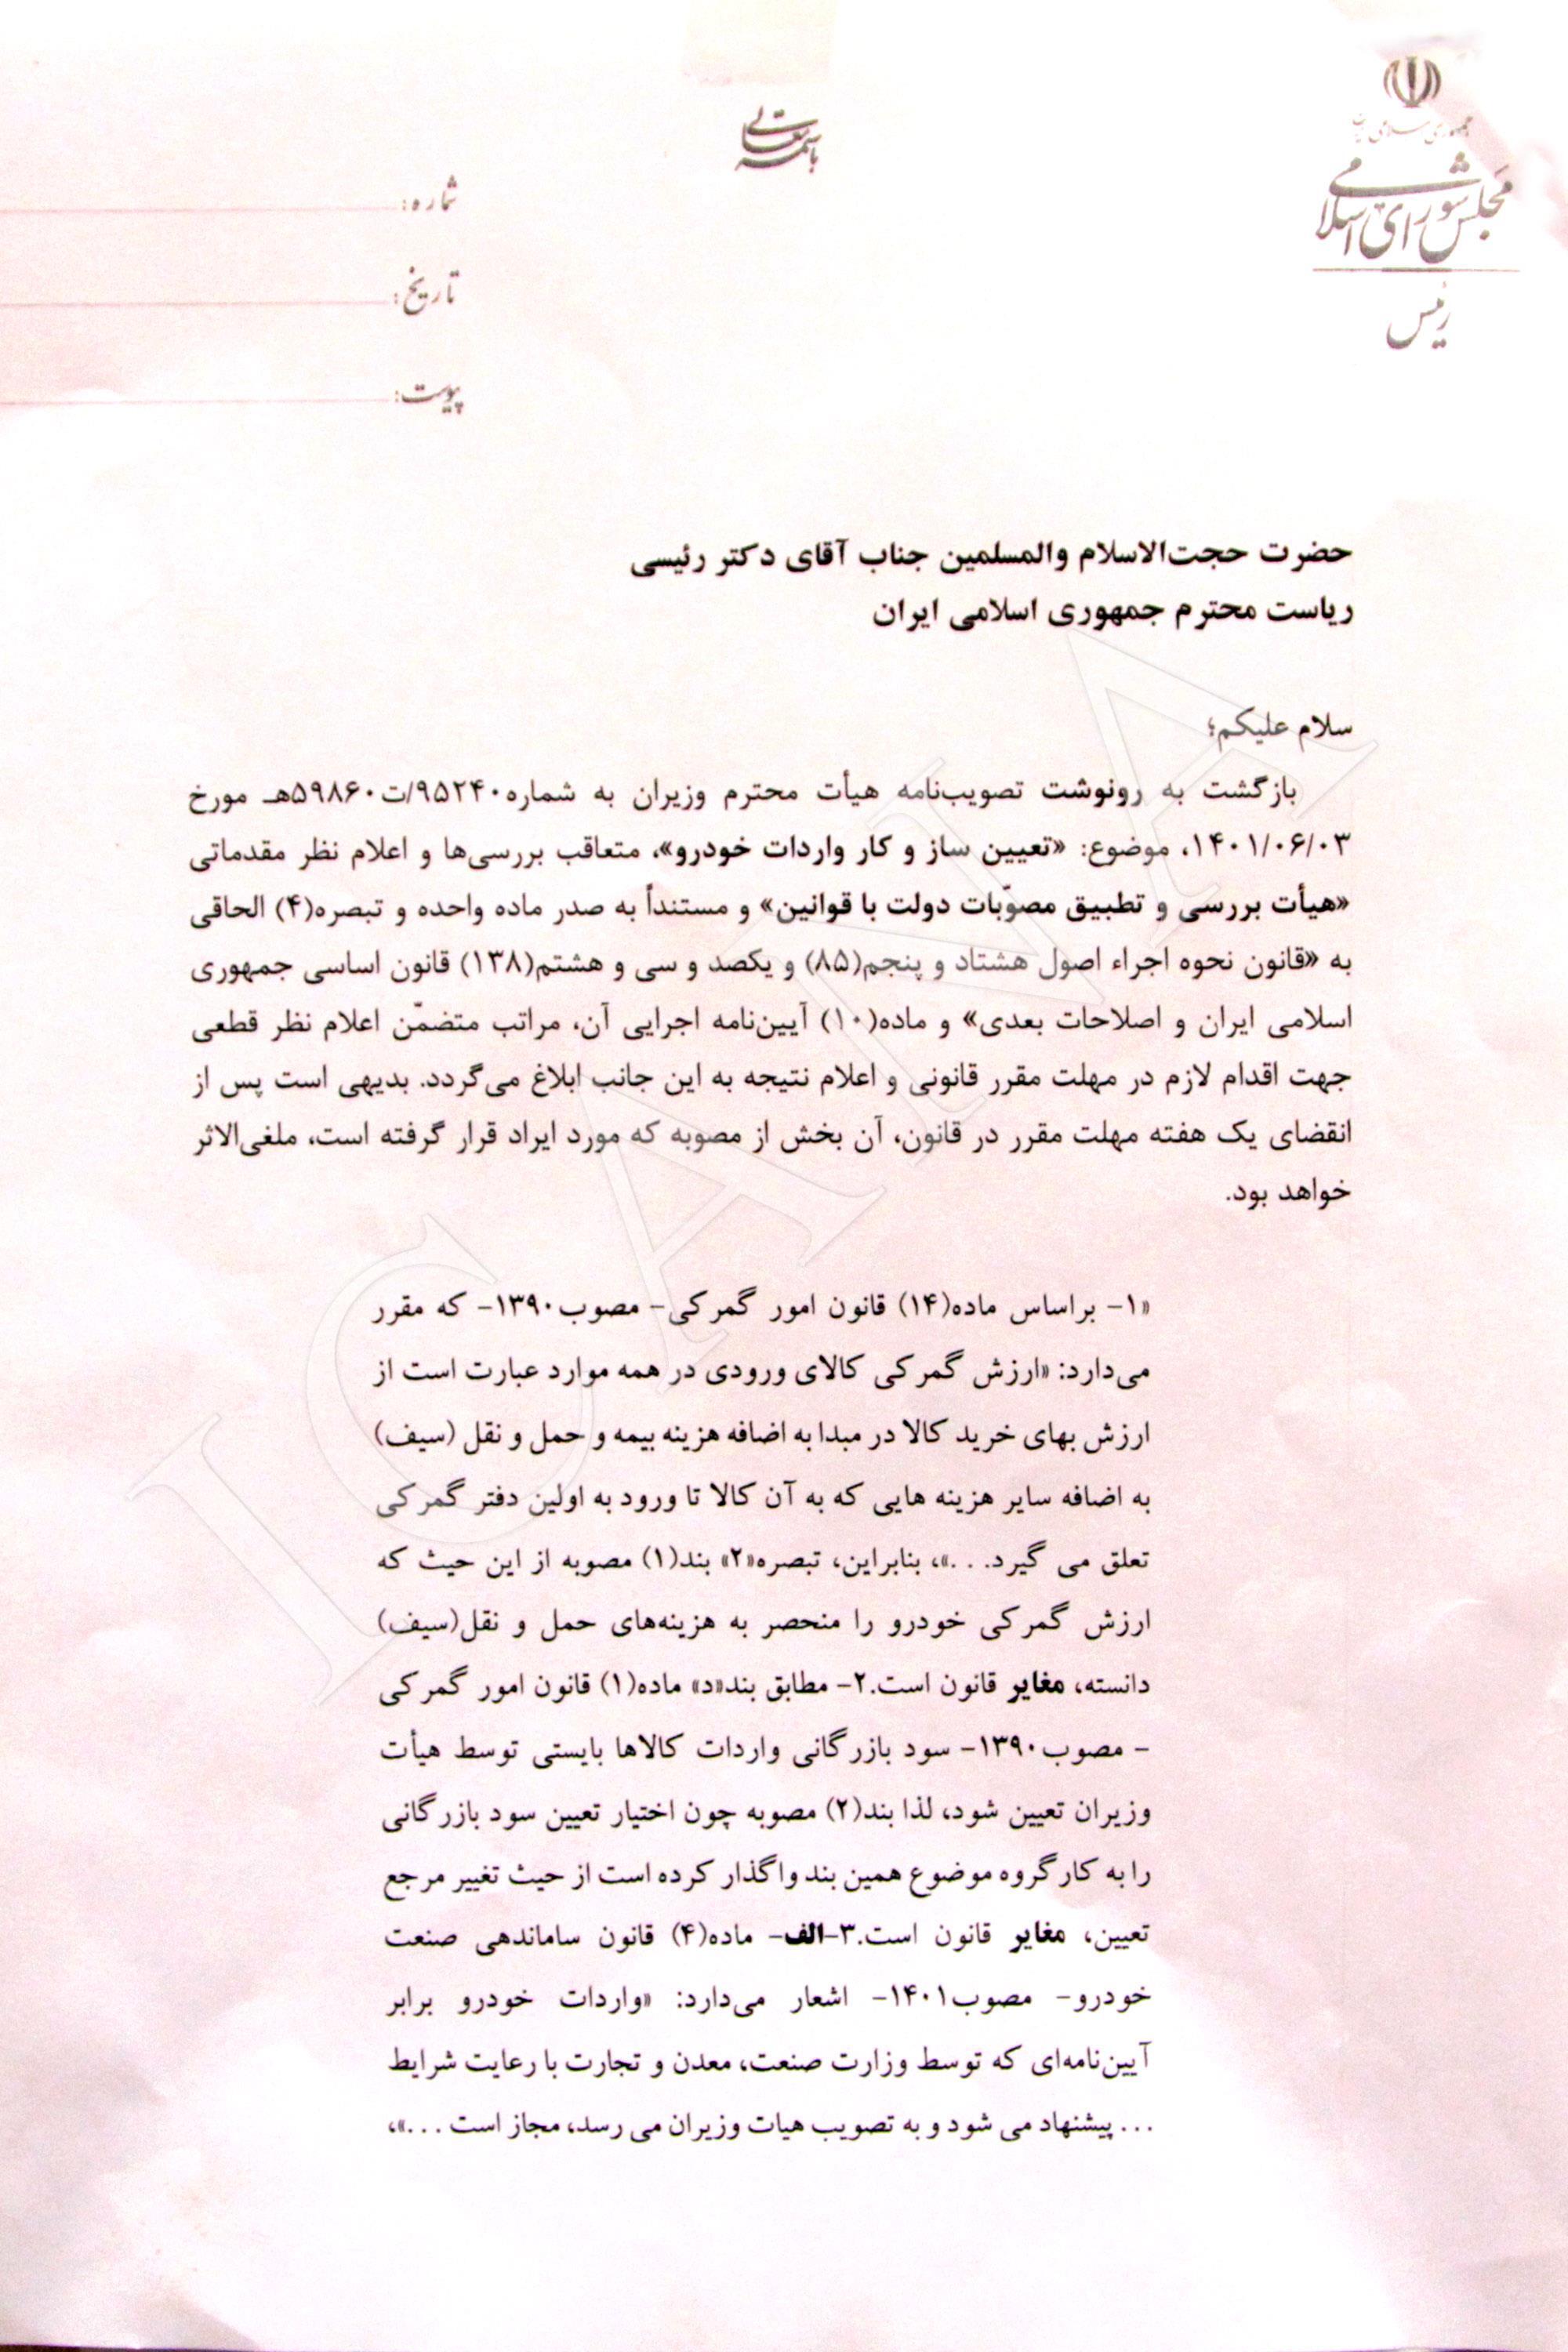 باسمه تعالی
جمهوری اسلامی ایران
مجلس شورای اسلامی
رئیس
شماره:
تاریخ:
پیوست:
حضرت حجت‌الاسلام والمسلمین جناب آقای دکتر رئیسی
ریاست محترم جمهوری اسلامی ایران
سلام علیکم؛
بازگشت به رونوشت تصویب‌نامه هیأت محترم وزیران به شماره۹۵۲۴۰/ت۵۹۸۶۰هـ مورخ
۱۴۰۱/۰۶/۰۳، موضوع: «تعیین ساز و کار واردات خودرو»، متعاقب بررسی‌ها و اعلام نظر مقدماتی
«هیأت بررسی و تطبیق مصوّبات دولت با قوانین» و مستنداً به صدر ماده واحده و تبصره(۴) الحاقی
به «قانون نحوه اجراء اصول هشتاد و پنجم(۸۵) و یکصد و سی و هشتم(۱۳۸) قانون اساسی جمهوری
اسلامی ایران و اصلاحات بعدی» و ماده(۱۰) آیین‌نامه اجرایی آن، مراتب متضمّن اعلام نظر قطعی
جهت اقدام لازم در مهلت مقرر قانونی و اعلام نتیجه به این جانب ابلاغ می‌گردد. بدیهی است پس از
انقضای یک هفته مهلت مقرر در قانون، آن بخش از مصوبه که مورد ایراد قرار گرفته است، ملغی‌الاثر
خواهد بود.
«۱- براساس ماده(۱۴) قانون امور گمرکی- مصوب۱۳۹۰- که مقرر
می‌دارد: «ارزش گمرکی کالای ورودی در همه موارد عبارت است از
ارزش بهای خرید کالا در مبدا به اضافه هزینه بیمه و حمل و نقل (سیف)
به اضافه سایر هزینه هایی که به آن کالا تا ورود به اولین دفتر گمرکی
تعلق می گیرد. . .»، بنابراین، تبصره«۲» بند(۱) مصوبه از این حیث که
ارزش گمرکی خودرو را منحصر به هزینه‌های حمل و نقل(سیف)
دانسته، مغایر قانون است.۲- مطابق بند«د» ماده(۱) قانون امور گمرکی
- مصوب۱۳۹۰- سود بازرگانی واردات کالاها بایستی توسط هیأت
وزیران تعیین شود، لذا بند(۲) مصوبه چون اختیار تعیین سود بازرگانی
را به کارگروه موضوع همین بند واگذار کرده است از حیث تغییر مرجع
تعیین، مغایر قانون است.۳-الف- ماده(۴) قانون ساماندهی صنعت
خودرو- مصوب۱۴۰۱- اشعار می‌دارد: «واردات خودرو برابر
آیین‌نامه‌ای که توسط وزارت صنعت، معدن و تجارت با رعایت شرایط
... پیشنهاد می شود و به تصویب هیات وزیران می رسد، مجاز است ...»،
ICANA